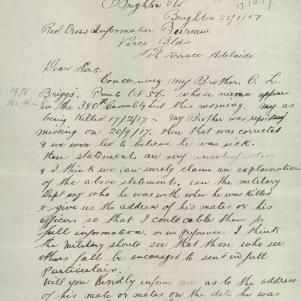 Brighton
Brighton 22/1/17
Red Cross Information Bureau
Verco Bldgs
Nth Terrace Adelaide
Dear Sirs.
Concerning my Brother C. L.
Briggs. 56. whose name appear
in the 380th Casualty list this morning, as
being Killed 17/2/17 - My Brother was
missing on 20/9/17. then that was corrected
& we were led to believe he was sick.
these statements are very
& I think we can surely claim an explanation
of the above statements, can the military
Dept say who he was with when he was killed
& give us the address of his mates or his
officers so that I could cable them for
full information. I think
the military should see that those who see
others fall be encouraged to send in full
particulars.
Will you kindly inform me as to the address
of his mate or mates on the date he was